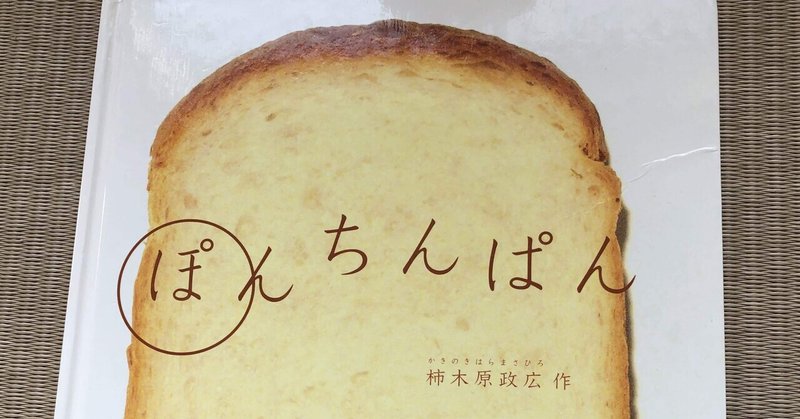 ぽんちんぱん
かきのきはらまさひろ
柿木原政広 作